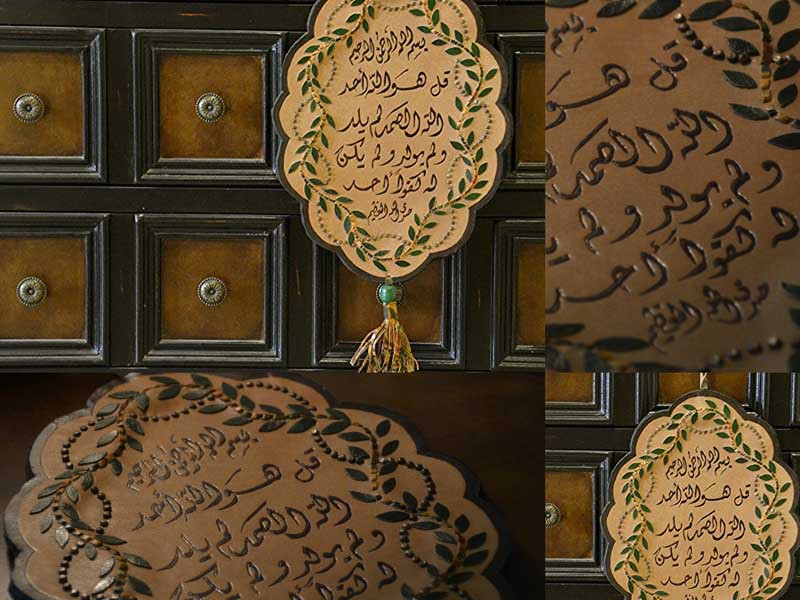 بسم الله الرحمن الرحيم
قل هو الله أحد
الله الصمد لم يلد
ولم يولد ولم يكن
له كفواً أحد
صدق الله العظيم
قل
هو
الله الصمد
ولم يولد ولم
له كفواً أحد
صدق الله العظيم
بسم الله الرحمن الرحيم
قل هو الله أحد
الله الصمد لم يلد
ولم يولد ولم يكن
بسم الله الرحمن الرحيم
قل هو الله أحد
الله الصمد لم يلد
ولم يولد ولم يكن
له كفواً أحد